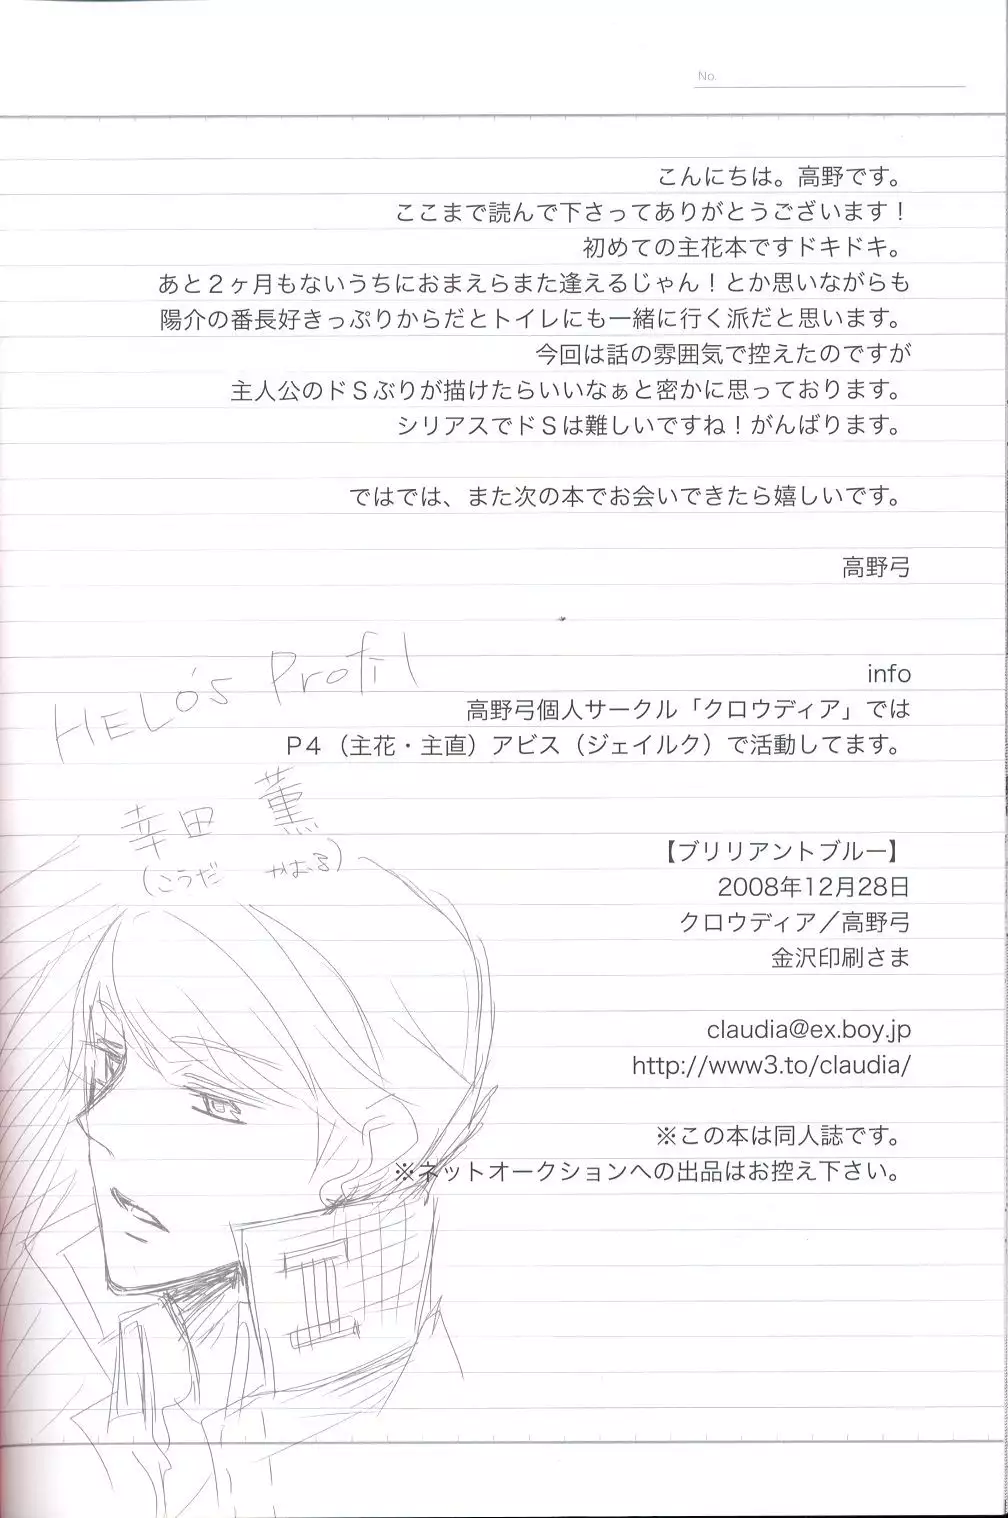 No.
こんにちは。高野です。
ここまで読んで下さってありがとうございます！
初めての主花本ですドキドキ。
あと２ヶ月もないうちにおまえらまた逢えるじゃん！とか思いながらも
陽介の番長好きっぷりからだとトイレにも一緒に行く派だと思います。
今回は話の雰囲気で控えたのですが
主人公のドＳぶりが描けたらいいなぁと密かに思っております。
シリアスでドＳは難しいですね！がんばります。
ではでは、また次の本でお会いできたら嬉しいです。
高野弓
HELO's Profil
幸田 薫
(こうだ かおる)
info
高野弓個人サークル「クロウディア」では
P４（主花・主直）アビス（ジェイルク）で活動してます。
【ブリリアントブルー】
2008年12月28日
クロウディア／高野弓
金沢印刷さま
claudia@ex.boy.jp
http://www3.to/claudia/
※この本は同人誌です。
※ネットオークションへの出品はお控え下さい。